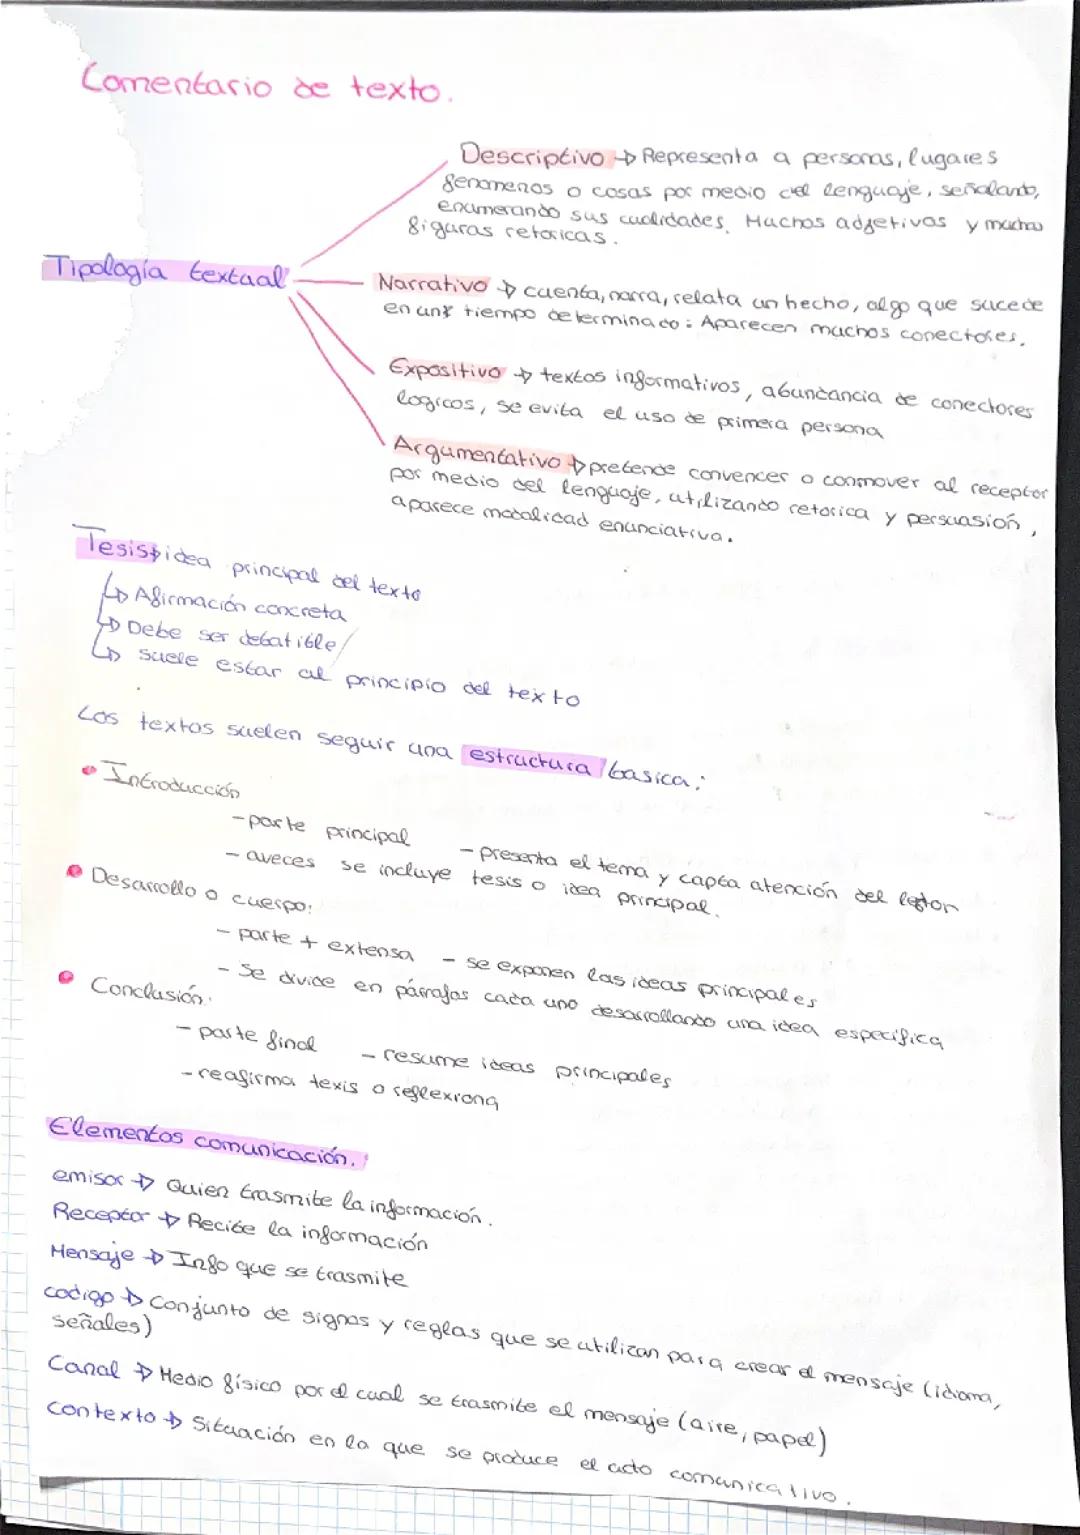 Comentario de texto.
Descriptivo → Representa a personas, lugares
fenomenos o cosas por medio del lenguaje, señalando,
enumerando sus cualidades. Muchos adjetivos y muchas
figuras retoricas.
Tipología textual
Narrativo → cuenta, narra, relata un hecho, algo que sucede
en un tiempo determinado: Aparecen muchos conectores.
Expositivo → textos informativos, abundancia de conectores
logicos, se evita el uso de primera persona
Argumentativo → pretende convencer o conmover al receptor
por medio del lenguaje, utilizando retorica y persuasión,
aparece modalidad enunciativa.
Tesis → idea principal del texto
↳ Afirmación concreta
↳ Debe ser debatible
↳ suele estar al principio del texto
Los textos suelen seguir una estructura basica:
• Introducción
- parte principal - presenta el tema y capta atención del lector
- aveces se incluye tesis o idea principal.
• Desarrollo o cuerpo:
- parte + extensa - se exponen las ideas principales
- Se divide en párrafos cada uno desarrollando una idea especifica
• Conclusión:
- parte final - resume ideas principales
- reafirma texis o reflexiona
Elementos comunicación.
emisor → Quien trasmite la información.
Receptor → Recibe la información
Mensaje → Info que se trasmite
codigo → Conjunto de signos y reglas que se utilizan para crear el mensaje (idioma,
señales)
Canal → Medio físico por el cual se trasmite el mensaje (aire, papel)
contexto → Situación en la que se produce el acto comunicativo.